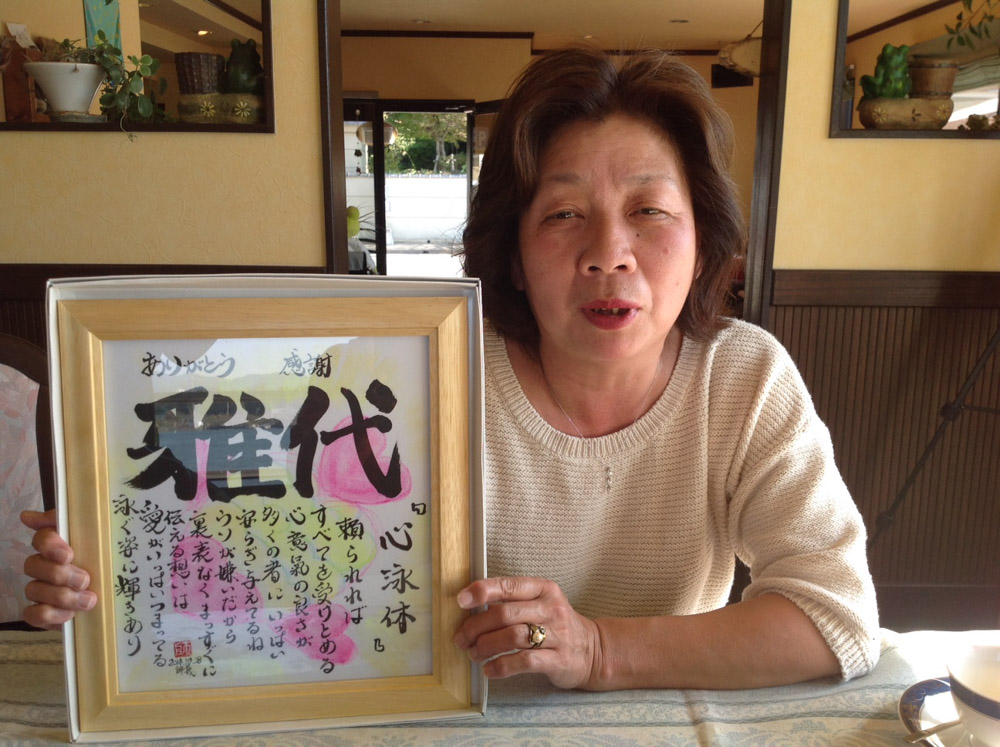 ありがとう 感謝
雅代
『心泳休』
頼られれば
すべてを受けとめる
心意氣の良さが
多くの者にいっぱい
安らぎ与えてるね
ウソが嫌いだから
裏表なくまっすぐに
伝える想いは
愛がいっぱいつまってる
泳ぐ姿に輝きあり